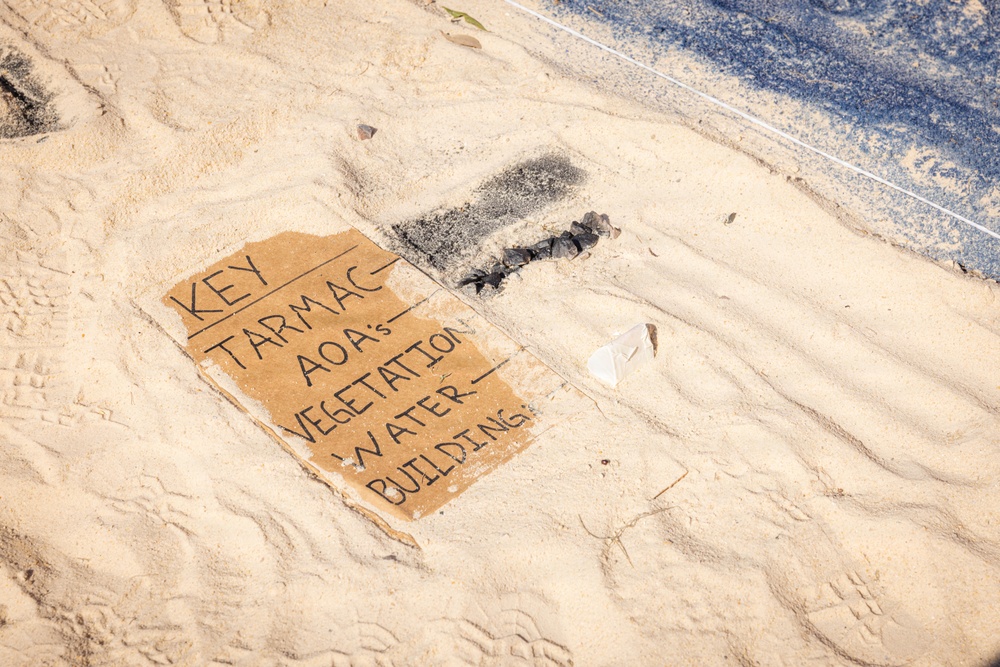 KEY
TARMAC-
AOA's-
VEGETATION
WATER-
BUILDING